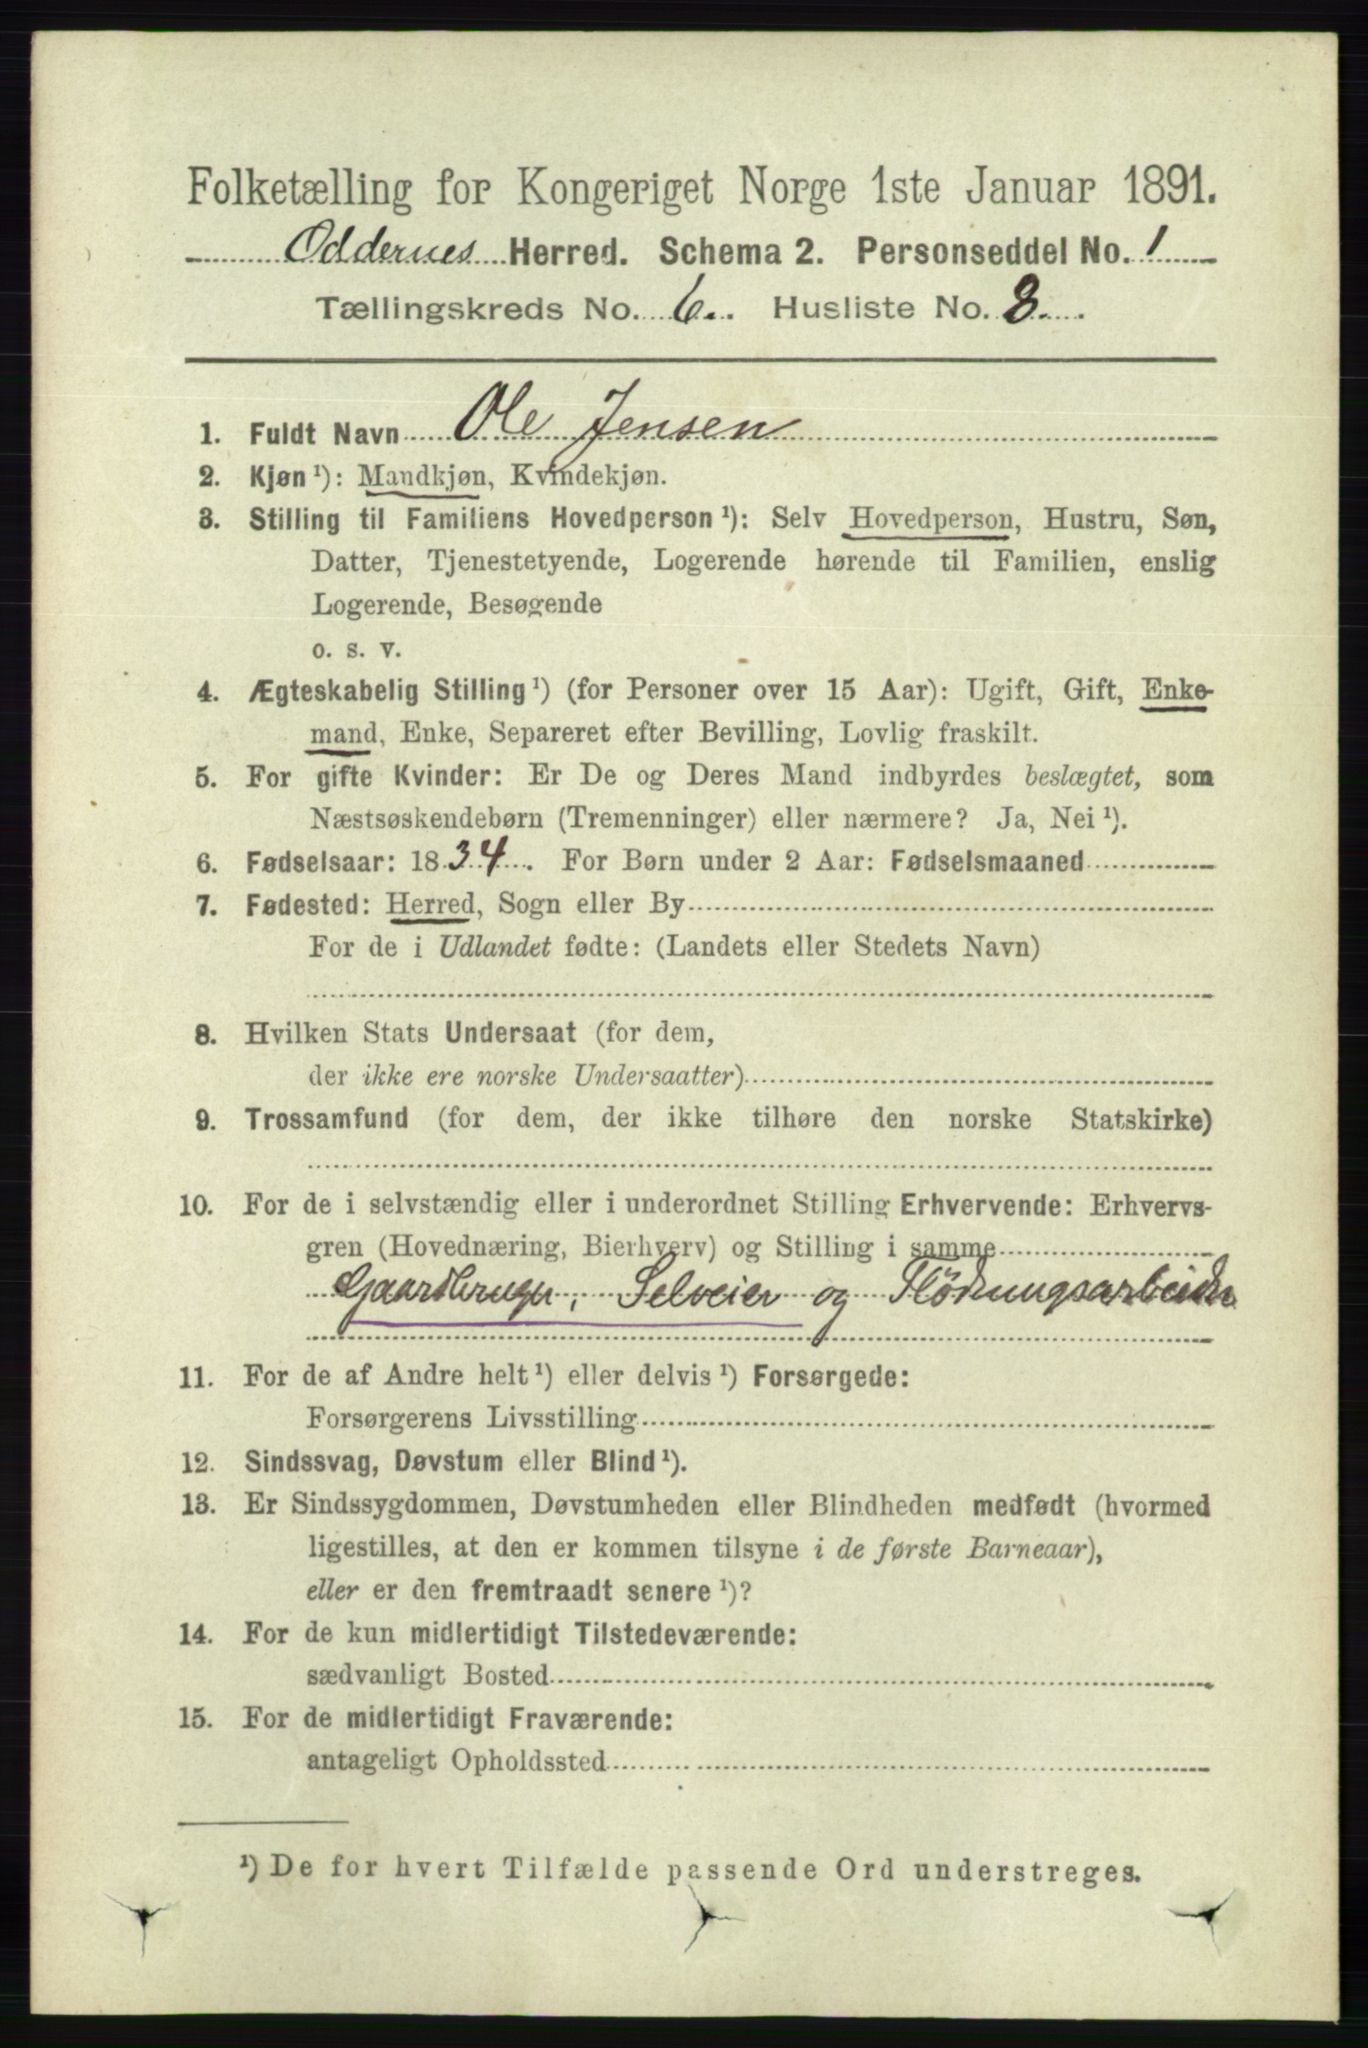 Folketælling for Kongeriget Norge 1ste Januar 1891.
Oddernes Herred. Schema 2. Personseddel No. 1
Tællingskreds No. 6. Husliste No. 8.
1. Fuldt Navn Ole Jensen
2. Kjøn¹): Mandkjøn, Kvindekjøn.
3. Stilling til Familiens Hovedperson¹): Selv Hovedperson, Hustru, Søn,
Datter, Tjenestetyende, Logerende hørende til Familien, enslig
Logerende, Besøgende
o. s. v.
4. Ægteskabelig Stilling¹) (for Personer over 15 Aar): Ugift, Gift, Enke-
mand, Enke, Separeret efter Bevilling, Lovlig fraskilt.
5. For gifte Kvinder: Er De og Deres Mand indbyrdes beslægtet, som
Næstsøskendebørn (Tremenninger) eller nærmere? Ja, Nei¹).
6. Fødselsaar: 1834. For Børn under 2 Aar: Fødselsmaaned
7. Fødested: Herred, Sogn eller By
For de i Udlandet fødte: (Landets eller Stedets Navn)
8. Hvilken Stats Undersaat (for dem,
der ikke ere norske Undersaatter)
9. Trossamfund (for dem, der ikke tilhøre den norske Statskirke)
10. For de i selvstændig eller i underordnet Stilling Erhvervende: Erhvervs-
gren (Hovednæring, Bierhverv) og Stilling i samme
Gaardbruger, Selveier og Flödningsarbeider
11. For de af Andre helt¹) eller delvis¹) Forsørgede:
Forsørgerens Livsstilling
12. Sindssvag, Døvstum eller Blind¹).
13. Er Sindssygdommen, Døvstumheden eller Blindheden medfødt (hvormed
ligestilles, at den er kommen tilsyne i de første Barneaar),
eller er den fremtraadt senere¹)?
14. For de kun midlertidigt Tilstedeværende:
sædvanligt Bosted
15. For de midlertidigt Fraværende:
antageligt Opholdssted
¹) De for hvert Tilfælde passende Ord understreges.